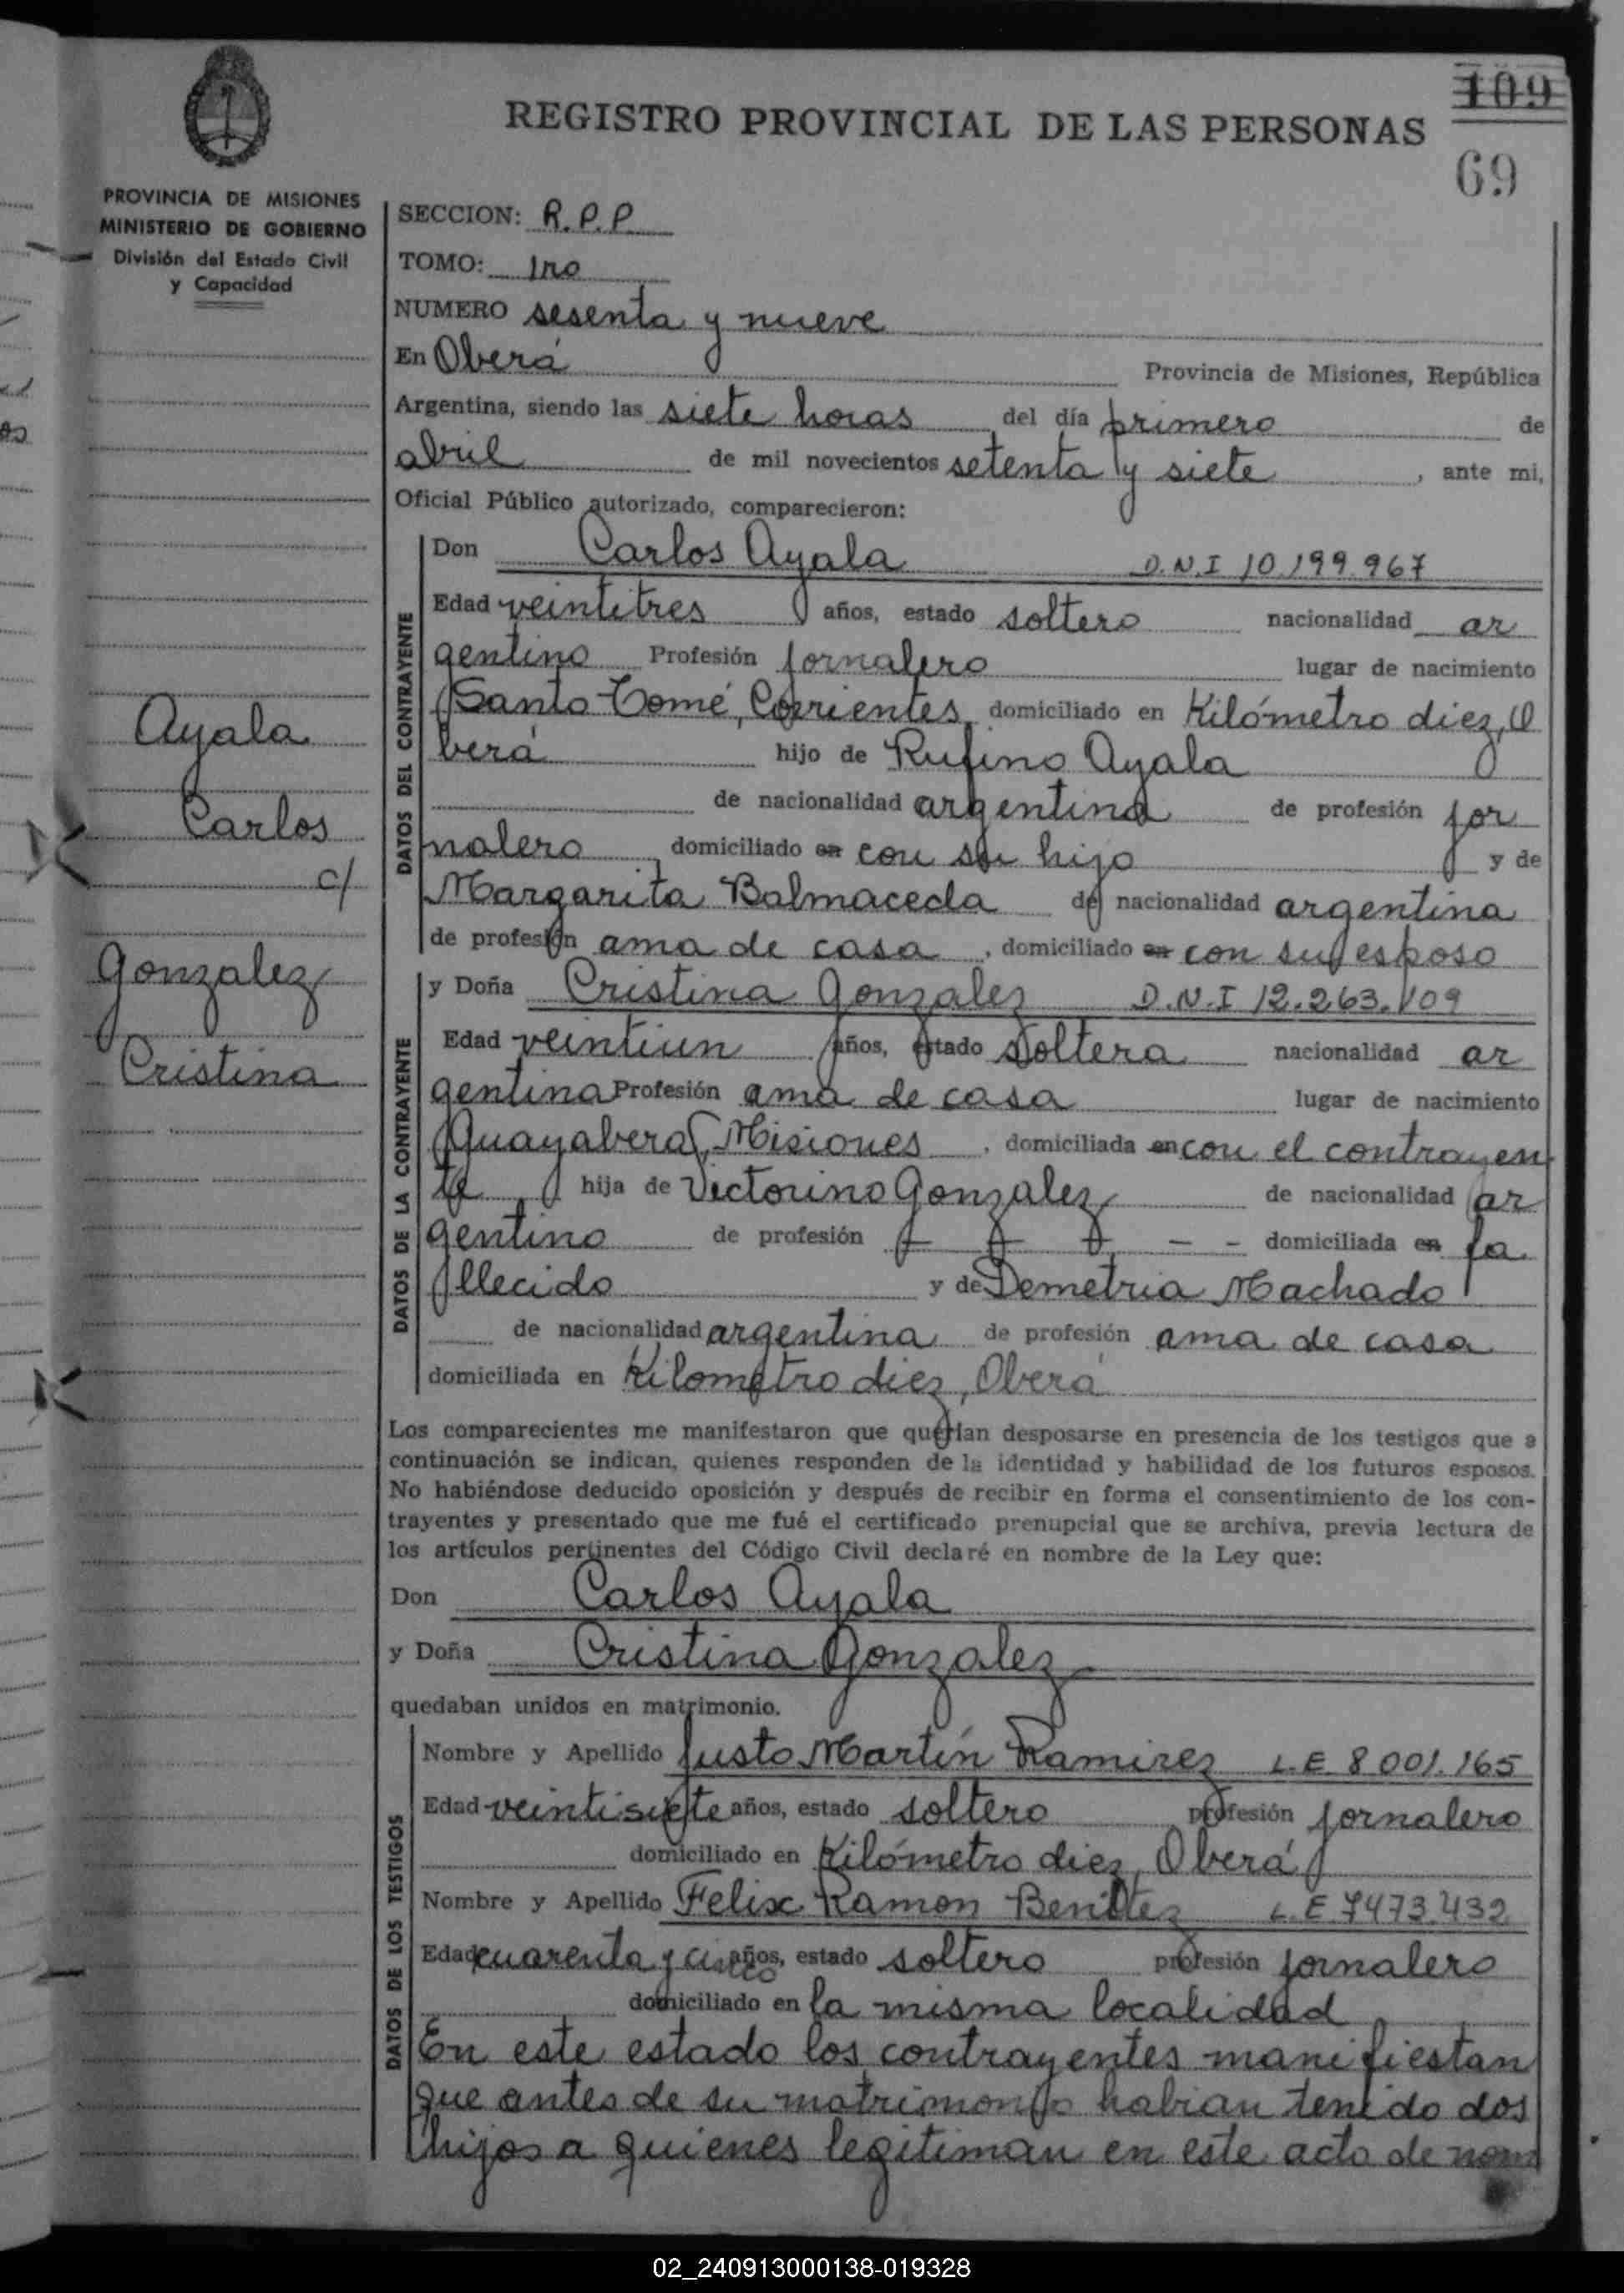 109
REGISTRO PROVINCIAL DE LAS PERSONAS
69
PROVINCIA DE MISIONES
MINISTERIO DE GOBIERNO
División del Estado Civil
y Capacidad
SECCION: R.P.P.
TOMO: 1ro
NUMERO sesenta y nueve
En Oberá Provincia de Misiones, República
Argentina, siendo las siete horas del día primero de
abril de mil novecientos setenta y siete, ante mi,
Oficial Público autorizado, comparecieron:
DATOS DEL CONTRAYENTE
Don Carlos Ayala D.N.I 10.199.967
Edad veintitres años, estado soltero nacionalidad ar
gentino Profesión jornalero lugar de nacimiento
Santo Tomé, Corrientes, domiciliado en Kilómetro diez, O
berá hijo de Rufino Ayala
de nacionalidad argentina de profesión jor
nalero, domiciliado en con su hijo y de
Margarita Balmaceda de nacionalidad argentina
de profesión ama de casa, domiciliado en con su esposo
Ayala
Carlos
c/
Gonzalez
Cristina
DATOS DE LA CONTRAYENTE
y Doña Cristina Gonzalez D.N.I 12.263.109
Edad veintiun años, estado soltera nacionalidad ar
gentina Profesión ama de casa lugar de nacimiento
Guayabera, Misiones, domiciliada en con el contrayen
te, hija de Victorino Gonzalez de nacionalidad ar
gentino de profesión - - - - - domiciliada en fa
llecido y de Demetria Machado
de nacionalidad argentina de profesión ama de casa
domiciliada en Kilometro diez, Oberá
Los comparecientes me manifestaron que querían desposarse en presencia de los testigos que a
continuación se indican, quienes responden de la identidad y habilidad de los futuros esposos.
No habiéndose deducido oposición y después de recibir en forma el consentimiento de los con-
trayentes y presentado que me fué el certificado prenupcial que se archiva, previa lectura de
los artículos pertinentes del Código Civil declaré en nombre de la Ley que:
Don Carlos Ayala
y Doña Cristina Gonzalez
quedaban unidos en matrimonio.
DATOS DE LOS TESTIGOS
Nombre y Apellido Justo Martín Ramirez L.E. 8001.165
Edad veintisiete años, estado soltero profesión jornalero
domiciliado en Kilómetro diez, Oberá
Nombre y Apellido Felix Ramon Benitez L.E 7473.432
Edad cuarenta y cinco años, estado soltero profesión jornalero
domiciliado en la misma localidad
En este estado los contrayentes manifiestan
que antes de su matrimonio habian tenido dos
hijos a quienes legitiman en este acto de nom
02_240913000138-019328